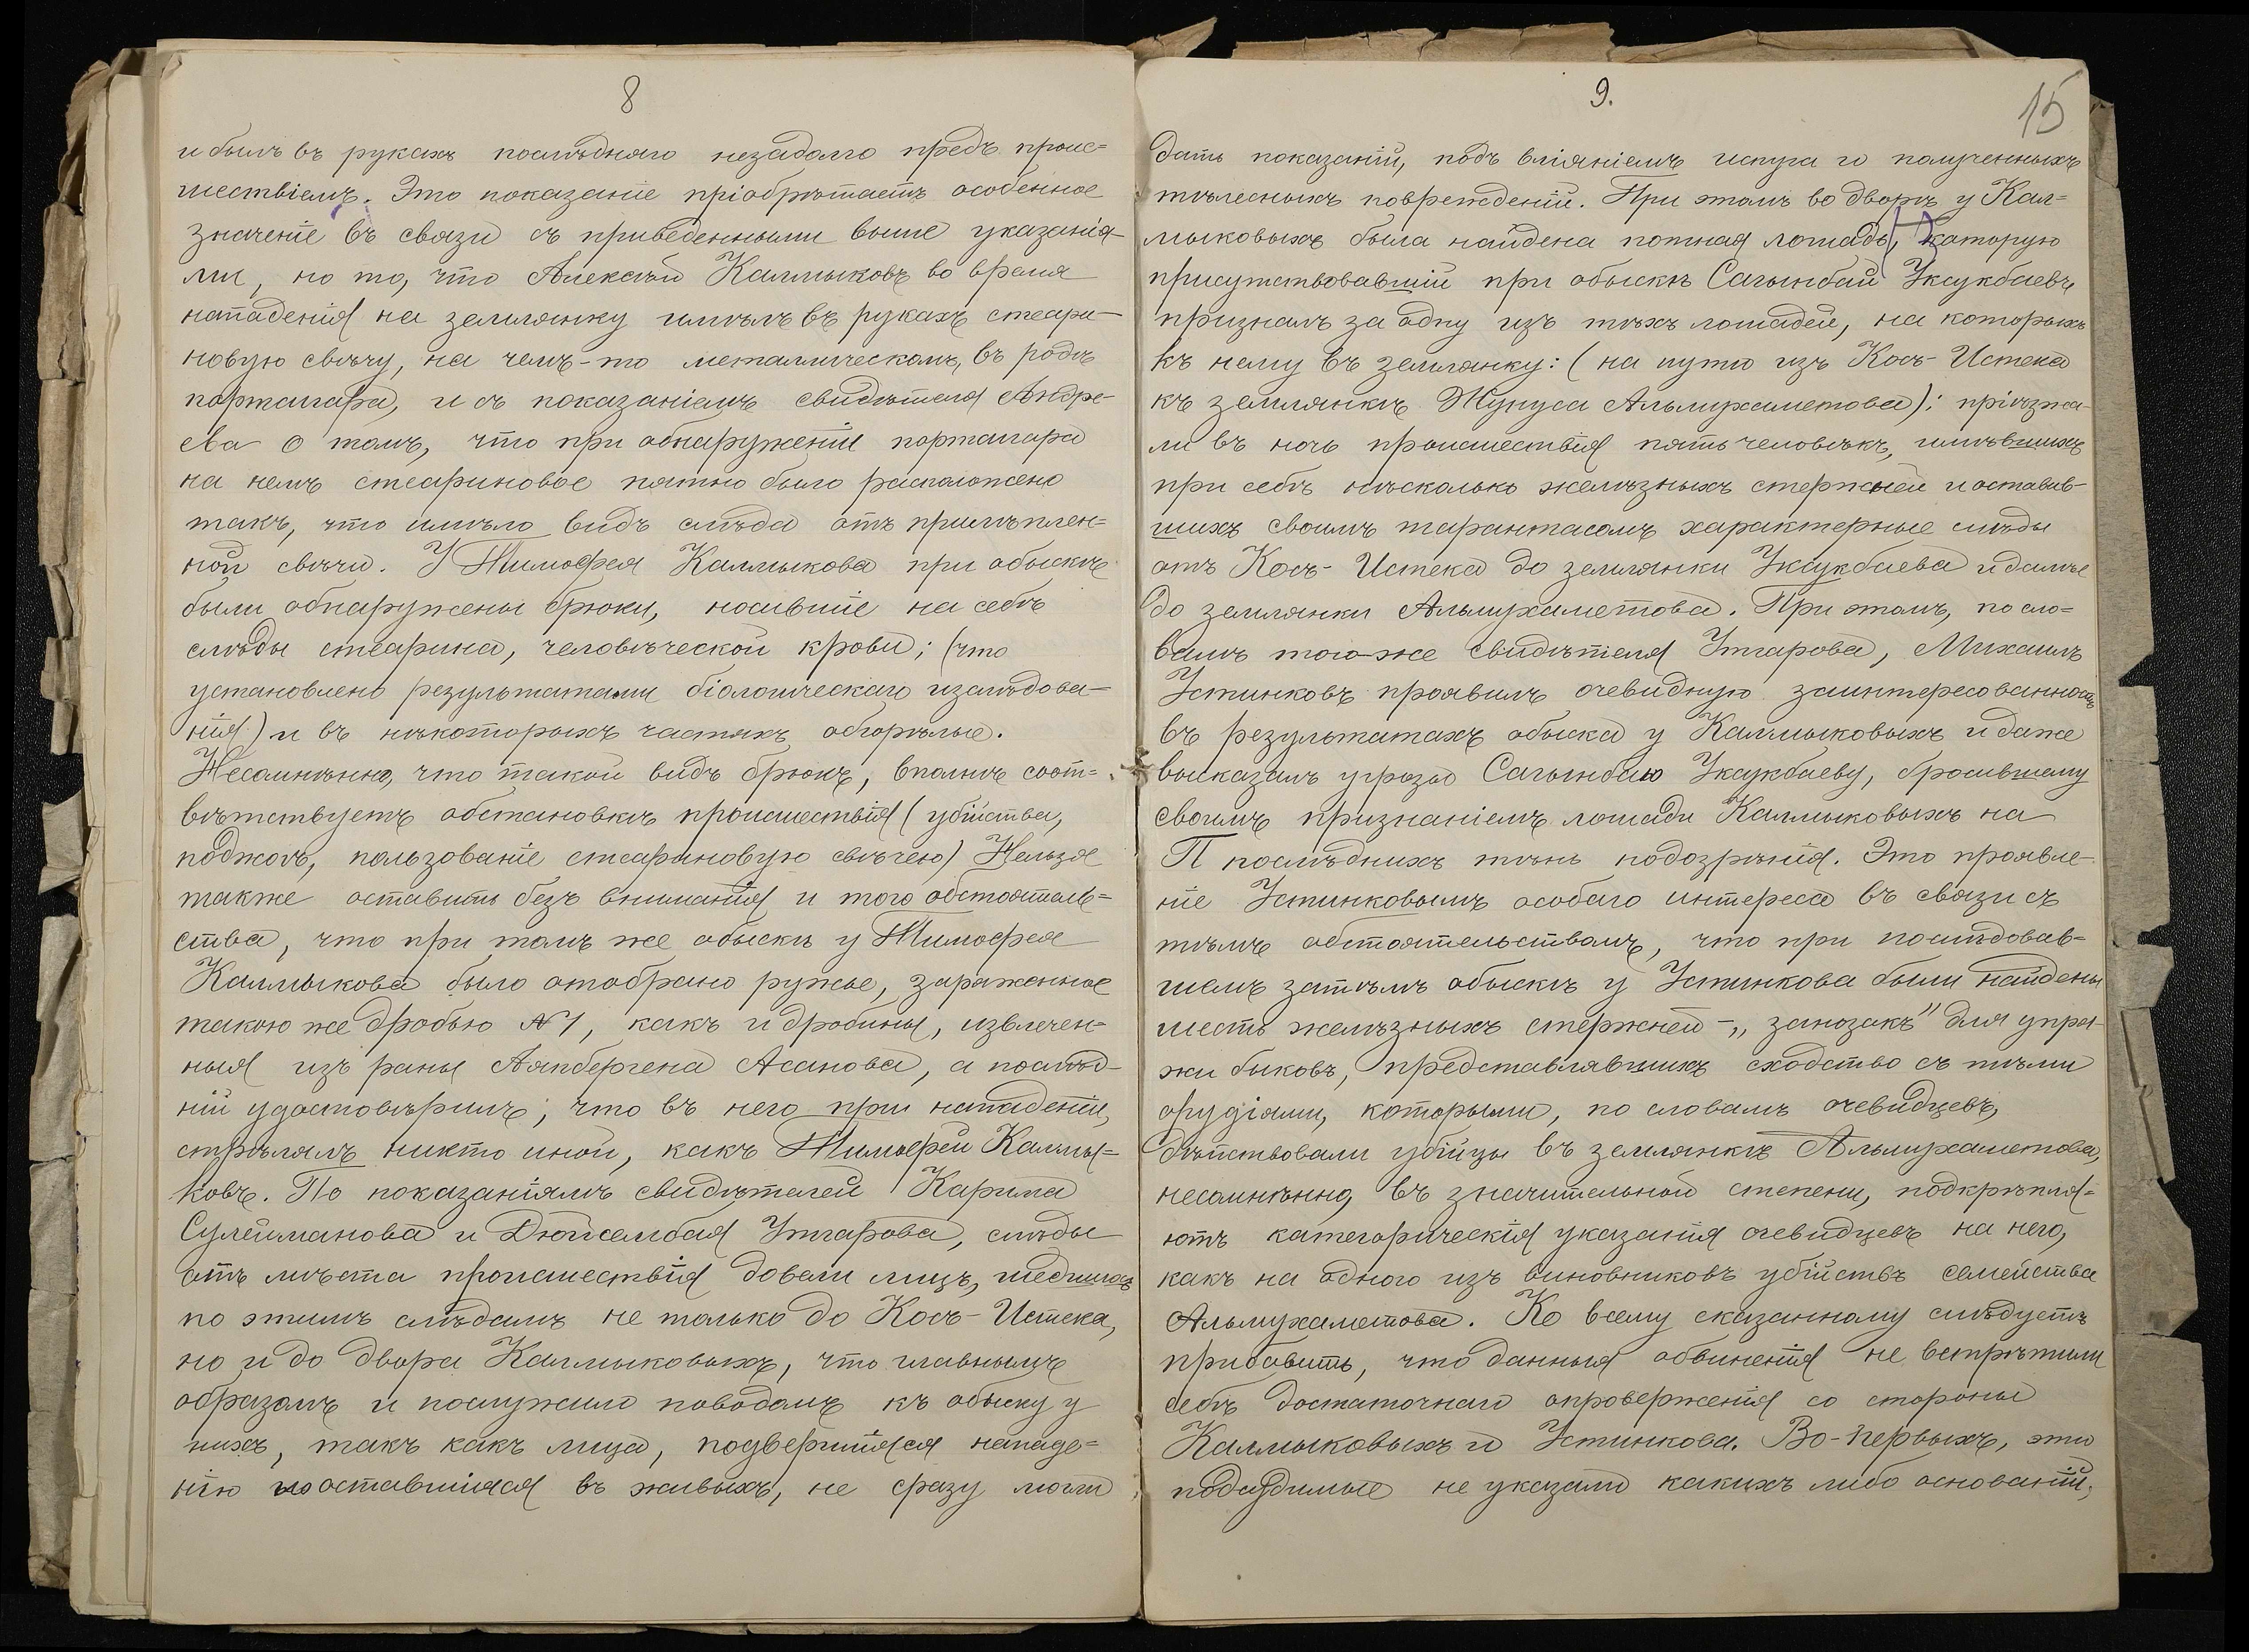 8
и былъ въ рукахъ послѣдняго незадолго предъ проис=
шествіемъ. Это показаніе пріобрѣтаетъ особенное
значеніе въ связи съ приведенными выше указанія-
ми, но то, что Алексѣй Калмыковъ во время
нападенія на землянку имѣлъ въ рукахъ стеари-
новую свѣчу, на чемъ-то металлическомъ, въ родѣ
портсигара, и съ показаніемъ свидѣтеля Андре-
ева о томъ, что при обнаруженіи портсигара
на немъ стеариновое пятно было расположено
такъ, что имѣло видъ слѣда отъ прилѣплен=
ной свѣчи. У Тимофея Калмыкова при обыскѣ
были обнаружены брюки, носившіе на себѣ
слѣды стеарина, человѣческой крови; (что
установлено результатами біологическаго изслѣдова-
нія) и въ нѣкоторыхъ частяхъ обгорѣлые.
Несомнѣнно, что такой видъ брюкъ, вполнѣ соот=
вѣтствуетъ обстановкѣ происшествія (убійства,
поджогъ, пользованіе стеариновую свѣчею) Нельзя
также оставить безъ вниманія и того обстоятель=
ства, что при томъ же обыскѣ у Тимофея
Калмыкова было отобрано ружье, заряженное
такою же дробью №1, какъ и дробины, извлечен=
ныя изъ раны Аяпбергена Асанова, а послѣд-
ній удостовѣрилъ, что въ него при нападеніи,
стрѣлялъ никто иной, какъ Тимофей Калмы=
ковъ. По показаніямъ свидѣтелей Карима
Сулейманова и Дюйсембая Утарова, слѣды
отъ мѣста происшествія довели лицъ, шедшихъ
по этимъ слѣдамъ не только до Кось-Истека,
но и до двора Калмыковыхъ, что главнымъ
образомъ и послужило поводомъ къ обыску у
нихъ, такъ какъ лица, подвергшіяся нападе=
нію и оставшіяся въ живыхъ, не сразу могли
9.
15
дать показаній, подъ вліяніемъ испуга и полученныхъ
тѣлесныхъ поврежденій. При этомъ во дворѣ у Кал=
мыковыхъ была найдена потная лошадь, которую
присутствовавшій при обыскѣ Сагынбай Уксукбаевъ
призналъ за одну изъ тѣхъ лошадей, на которыхъ
къ нему въ землянку: (на пути изъ Кось-Истека
къ землянкѣ Жунуса Альмухаметова): пріѣзжа-
ли въ ночь происшествія пять человѣкъ, имѣвшихъ
при себѣ нѣсколько желѣзныхъ стержней и оставив-
шихъ своимъ тарантасомъ характерные слѣды
отъ Кось-Истека до землянки Уксукбаева и далѣе
до землянки Альмухаметова. При этомъ, по сло=
вамъ того-же свидѣтеля Утарова, Михаилъ
Устинковъ проявилъ очевидную заинтересованность
въ результатахъ обыска у Калмыковыхъ и даже
высказалъ угрозы Сагынбаю Уксукбаеву, бросившему
своимъ признаніемъ лошади Калмыковыхъ на
П послѣднихъ тѣнь подозрѣнія. Это проявле-
ніе Устинковымъ особаго интереса въ связи съ
тѣмъ обстоятельствомъ, что при послѣдовав=
шемъ затѣмъ обыскѣ у Устинкова были найдены
шесть желѣзныхъ стержней-„занозакъ" для упря-
жи быковъ, представлявшихъ сходство съ тѣми
орудіями, которыми, по словамъ очевидцевъ,
дѣйствовали убійцы въ землянкѣ Альмухаметова,
несомнѣнно, въ значительной степени, подкрѣпля=
ютъ категорическія указанія очевидцевъ на него,
какъ на одного изъ виновниковъ убійствъ семейства
Альмухаметова. Ко всему сказанному слѣдуетъ
прибавить, что данныя обвиненія не встрѣтили
себѣ достаточнаго опроверженія со стороны
Калмыковыхъ и Устинкова. Во-первыхъ, эти
подсудимые не указали какихъ либо основаній,